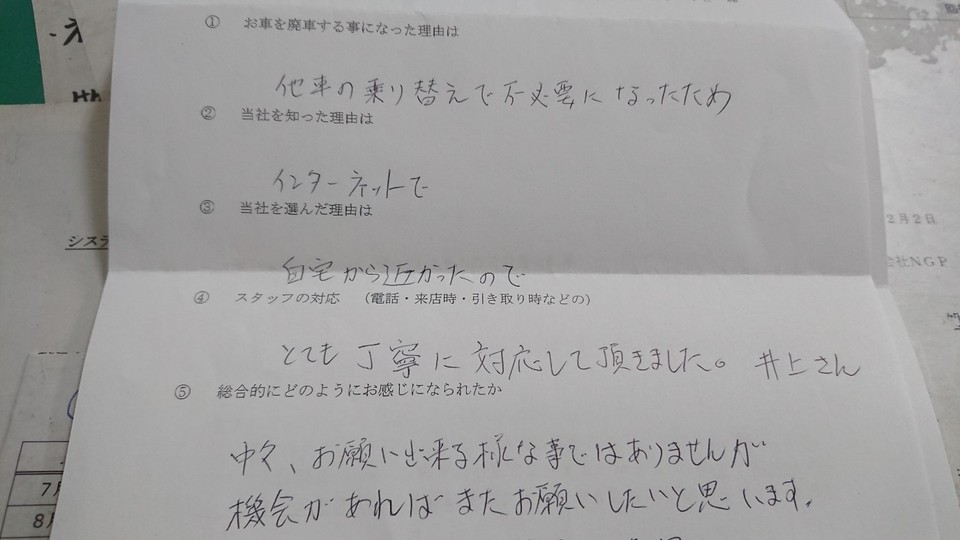 ① お車を廃車する事になった理由は
他車の乗り替えで不必要になったため
② 当社を知った理由は
インターネットで
③ 当社を選んだ理由は
自宅から近かったので
④ スタッフの対応 （電話・来店時・引き取り時などの）
とても丁寧に対応して頂きました。 井上さん
⑤ 総合的にどのようにお感じになられたか
中々、お願い出来る様な事ではありませんが
機会があればまたお願いしたいと思います。
システ
2月2日
会社NGP
7月
8月